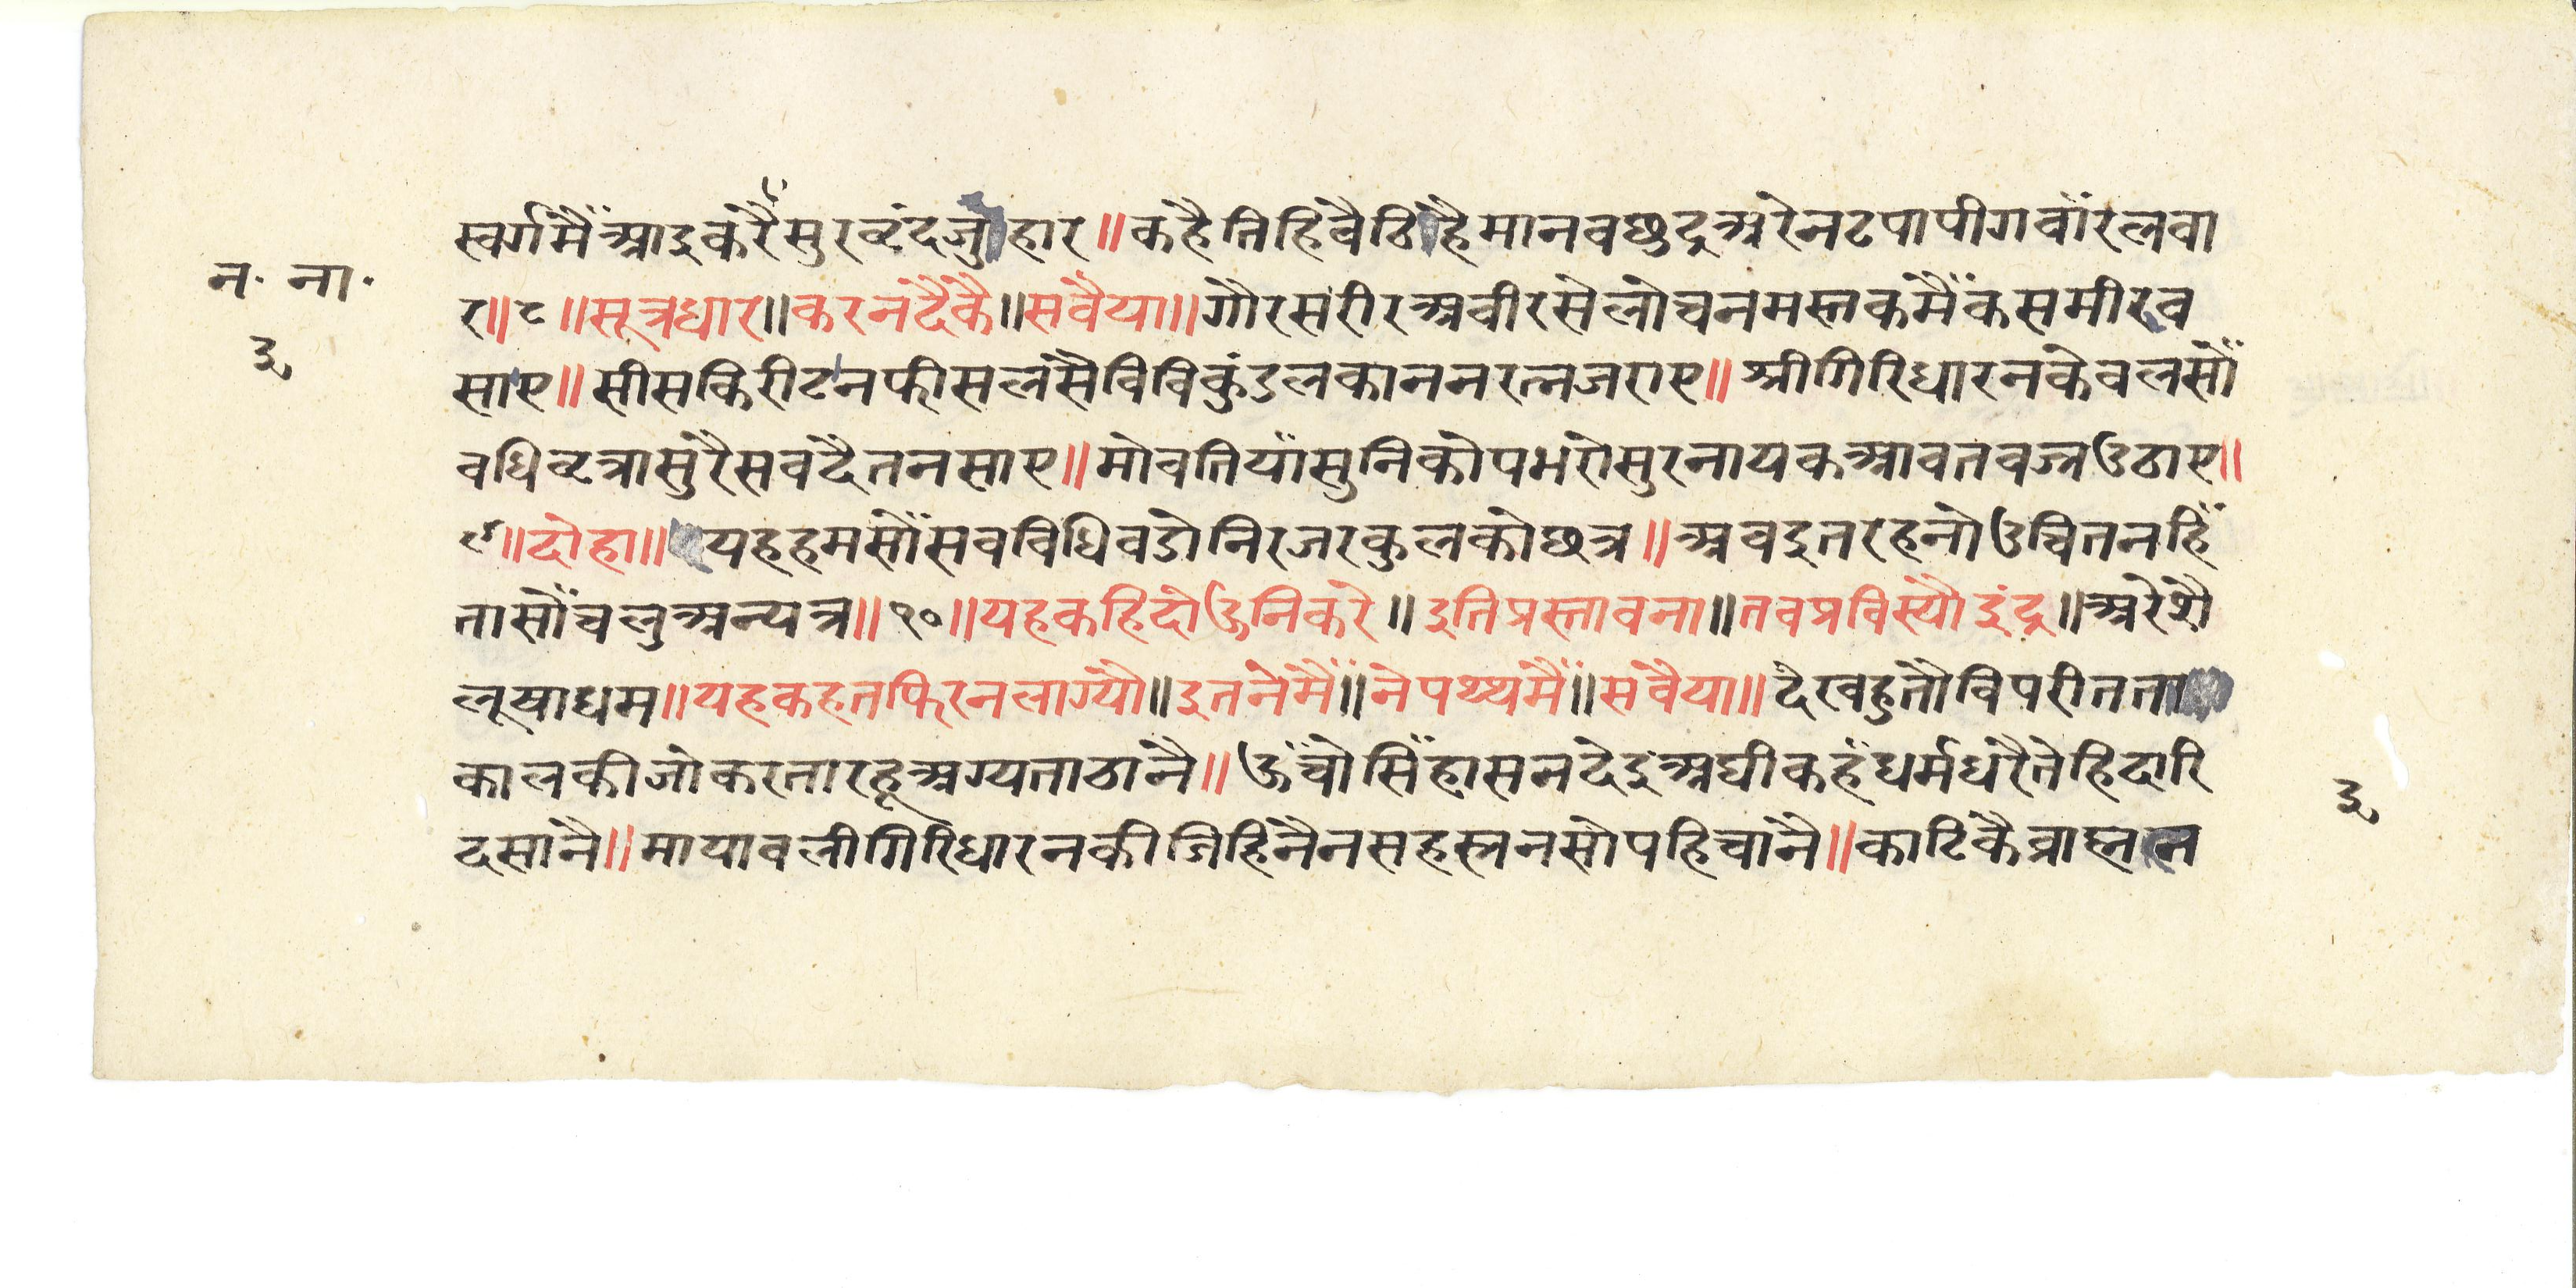 स्वर्गमैंआइकरैंसुरवृंदजुहार॥कहैतिहिंवैठिहैमानवछुद्रअरेनटपापीगवाँरलवा
न॰ ना॰
र॥८॥सूत्रधार॥करनदैकै॥सवैया॥गौरसरीरअवीरसेलोचनमस्तकमैंकसमीरव
३
साए॥सीसकिरीटनफीसलसैविविकुंडलकाननरत्नजराए॥श्रीगिरिधारनकेवलसों
वधिवृत्रासुरैसवदैतनसाए॥मोवतियाँसुनिकोपभरोसुरनायकआवतवज्रउठाए॥
९॥दोहा॥यहहमसोंसवविधिवडोनिरजरकुलकोछत्र॥अवइतरहनोउचितनहिं
तासोंचलुअन्यत्र॥१०॥यहकहिदोऊनिकरे॥इतिप्रस्तावना॥तवप्रविस्यौइंद्र॥अरेशै
लूषाधम॥यहकहतफिरनलाग्यौ॥इतनेमैं॥नेपथ्यमैं॥सवैया॥देखहुतौविपरीतता
कालकीजोकरतारहूअग्यताठानै॥ऊँचोसिंहासनदेइअघीकहँधर्मधरैतेहिदारि
३
दसानै॥मायावलीगिरिधारनकीजिहिंनैनसहस्रनसोपहिचानै॥काटिकैब्राह्मन